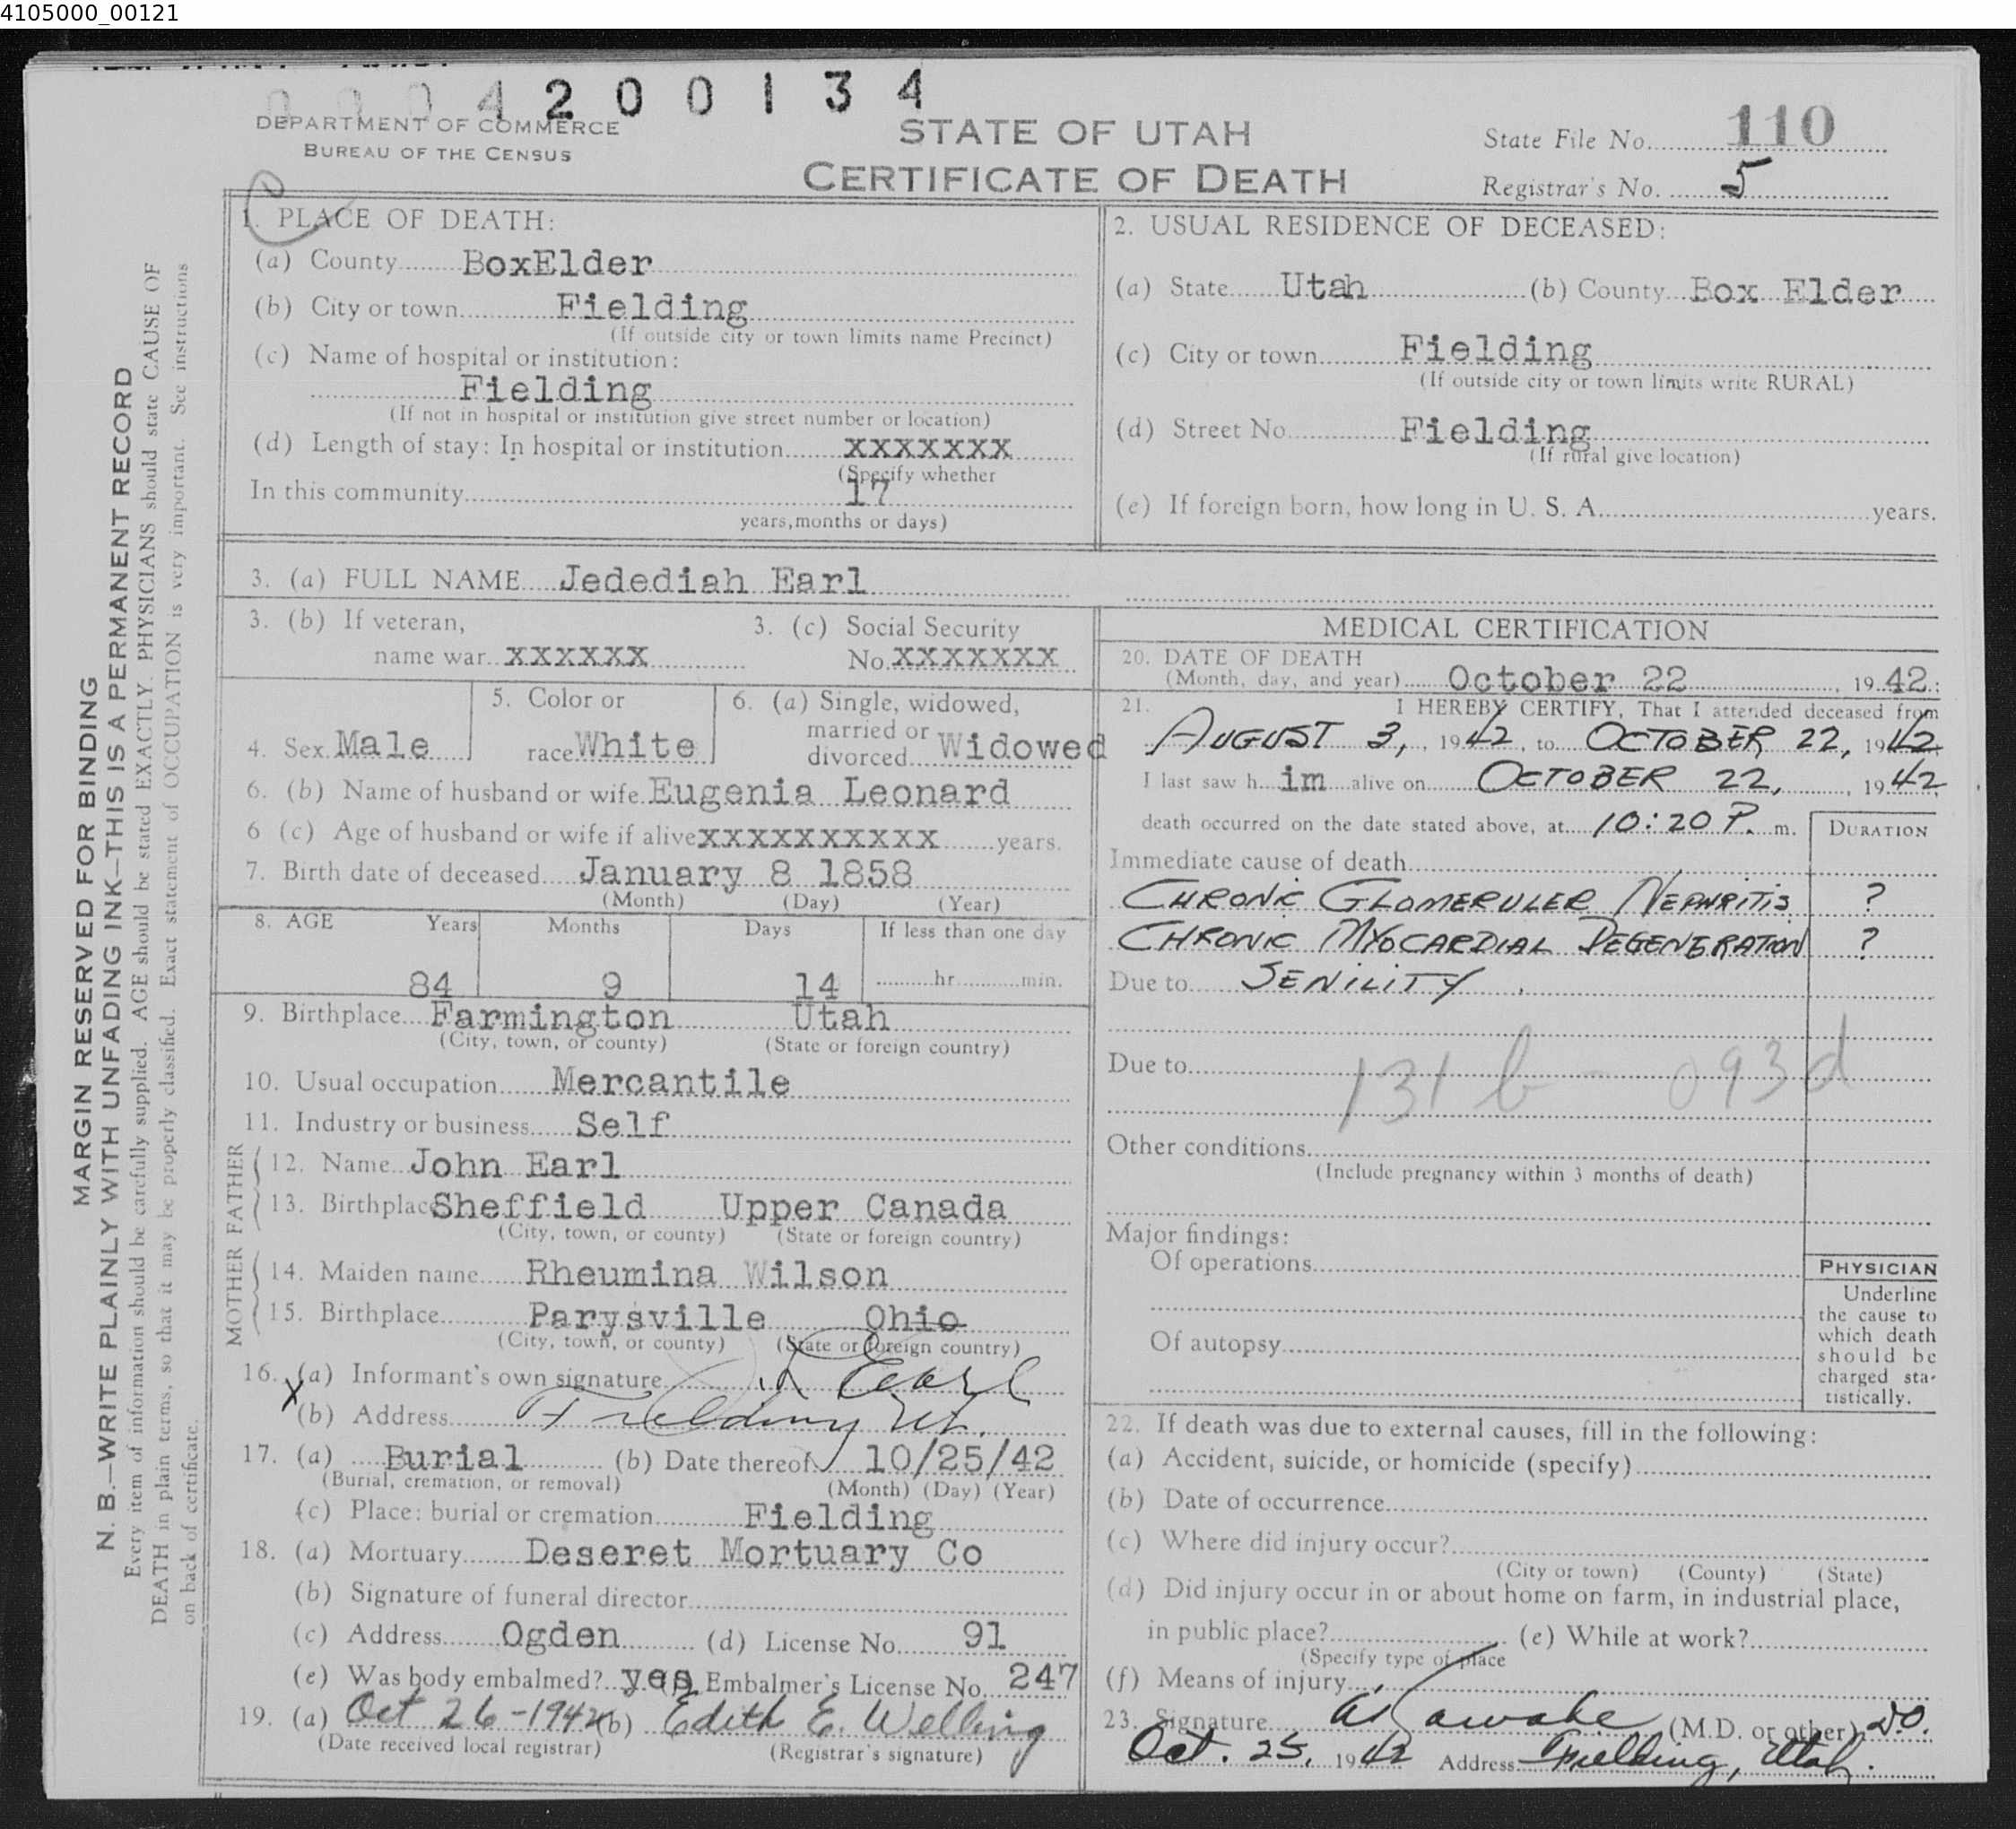 4105000_00121
0 0 0 4 2 0 0 1 3 4
DEPARTMENT OF COMMERCE
BUREAU OF THE CENSUS
STATE OF UTAH
CERTIFICATE OF DEATH
State File No. 110
Registrar's No. 5
MARGIN RESERVED FOR BINDING
N. B.—WRITE PLAINLY WITH UNFADING INK—THIS IS A PERMANENT RECORD
Every item of information should be carefully supplied. AGE should be stated EXACTLY. PHYSICIANS should state CAUSE OF
DEATH in plain terms, so that it may be properly classified. Exact statement of OCCUPATION is very important. See instructions
on back of certificate.
1. PLACE OF DEATH:
(a) County BoxElder
(b) City or town Fielding
(If outside city or town limits name Precinct)
(c) Name of hospital or institution:
Fielding
(If not in hospital or institution give street number or location)
(d) Length of stay: In hospital or institution XXXXXXX
(Specify whether
In this community 17
years, months or days)
2. USUAL RESIDENCE OF DECEASED:
(a) State Utah (b) County Box Elder
(c) City or town Fielding
(If outside city or town limits write RURAL)
(d) Street No. Fielding
(If rural give location)
(e) If foreign born, how long in U. S. A. years.
3. (a) FULL NAME Jedediah Earl
3. (b) If veteran,
name war XXXXXX
3. (c) Social Security
No. XXXXXXX
4. Sex Male
5. Color or
race White
6. (a) Single, widowed,
married or
divorced Widowed
6. (b) Name of husband or wife Eugenia Leonard
6 (c) Age of husband or wife if alive XXXXXXXXXX years.
7. Birth date of deceased January 8 1858
(Month) (Day) (Year)
8. AGE Years Months Days If less than one day
84 9 14 hr. min.
9. Birthplace Farmington Utah
(City, town, or county) (State or foreign country)
10. Usual occupation Mercantile
11. Industry or business Self
FATHER
12. Name John Earl
13. Birthplace Sheffield Upper Canada
(City, town, or county) (State or foreign country)
MOTHER
14. Maiden name Rheumina Wilson
15. Birthplace Parysville Ohio
(City, town, or county) (State or foreign country)
16. X (a) Informant's own signature Earl
(b) Address Fielding Ut.
17. (a) Burial (b) Date thereof 10/25/42
(Burial, cremation, or removal) (Month) (Day) (Year)
(c) Place: burial or cremation Fielding
18. (a) Mortuary Deseret Mortuary Co
(b) Signature of funeral director
(c) Address Ogden (d) License No. 91
(e) Was body embalmed? yes (f) Embalmer's License No. 247
19. (a) Oct 26-1942 (b) Edith E. Welling
(Date received local registrar) (Registrar's signature)
MEDICAL CERTIFICATION
20. DATE OF DEATH
(Month, day, and year) October 22, 1942:
21. I HEREBY CERTIFY, That I attended deceased from
AUGUST 3, 1942, to OCTOBER 22, 1942
I last saw him alive on OCTOBER 22, 1942
death occurred on the date stated above, at 10:20 P. m.
DURATION
Immediate cause of death
CHRONIC GLOMERULER NEPHRITIS ?
CHRONIC MYOCARDIAL DEGENERATION ?
Due to SENILITY.
Due to
131 b - 093d
Other conditions
(Include pregnancy within 3 months of death)
Major findings:
Of operations
Of autopsy
PHYSICIAN
Underline
the cause to
which death
should be
charged sta-
tistically.
22. If death was due to external causes, fill in the following:
(a) Accident, suicide, or homicide (specify)
(b) Date of occurrence
(c) Where did injury occur?
(City or town) (County) (State)
(d) Did injury occur in or about home on farm, in industrial place,
in public place? (e) While at work?
(Specify type of place
(f) Means of injury
23. Signature (M.D. or other) D.O.
Oct. 25, 1942 Address Fielding, Utah.